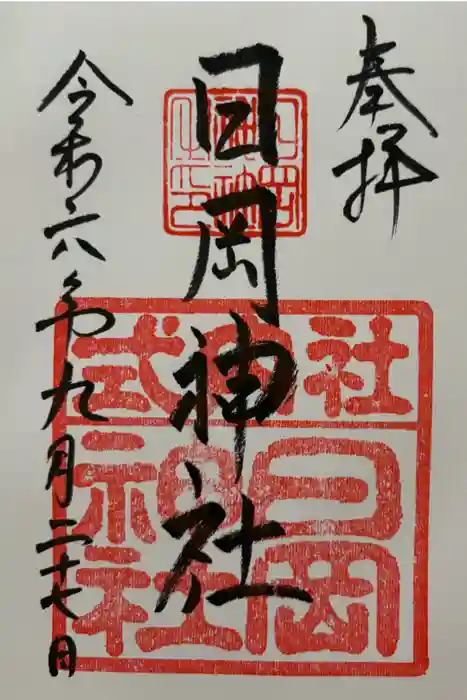 奉拝
日岡神社
令和六年九月二十七日
式内社
日岡神社